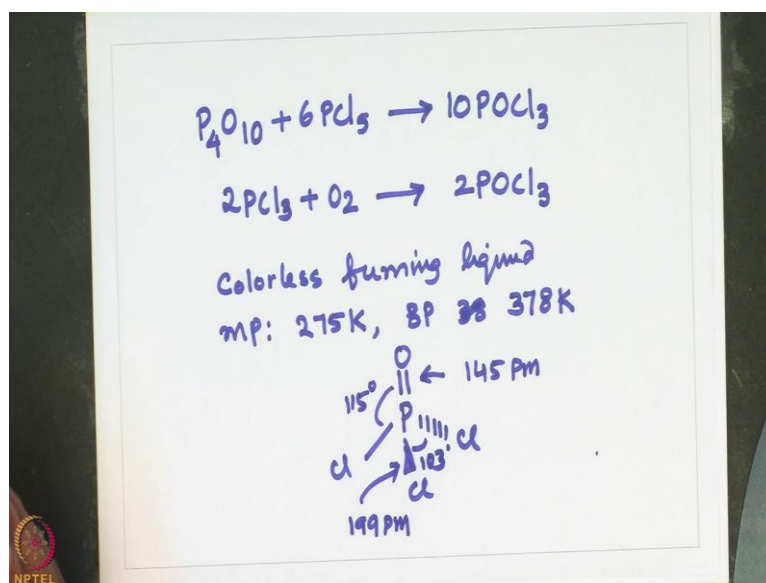 P₄O₁₀ + 6PCl₅ → 10POCl₃
2PCl₃ + O₂ → 2POCl₃
Colorless fuming liquid
MP: 275K, BP 378K
O
115° ← 145 pm
P
Cl Cl
103°
Cl
199 pm
NPTEL